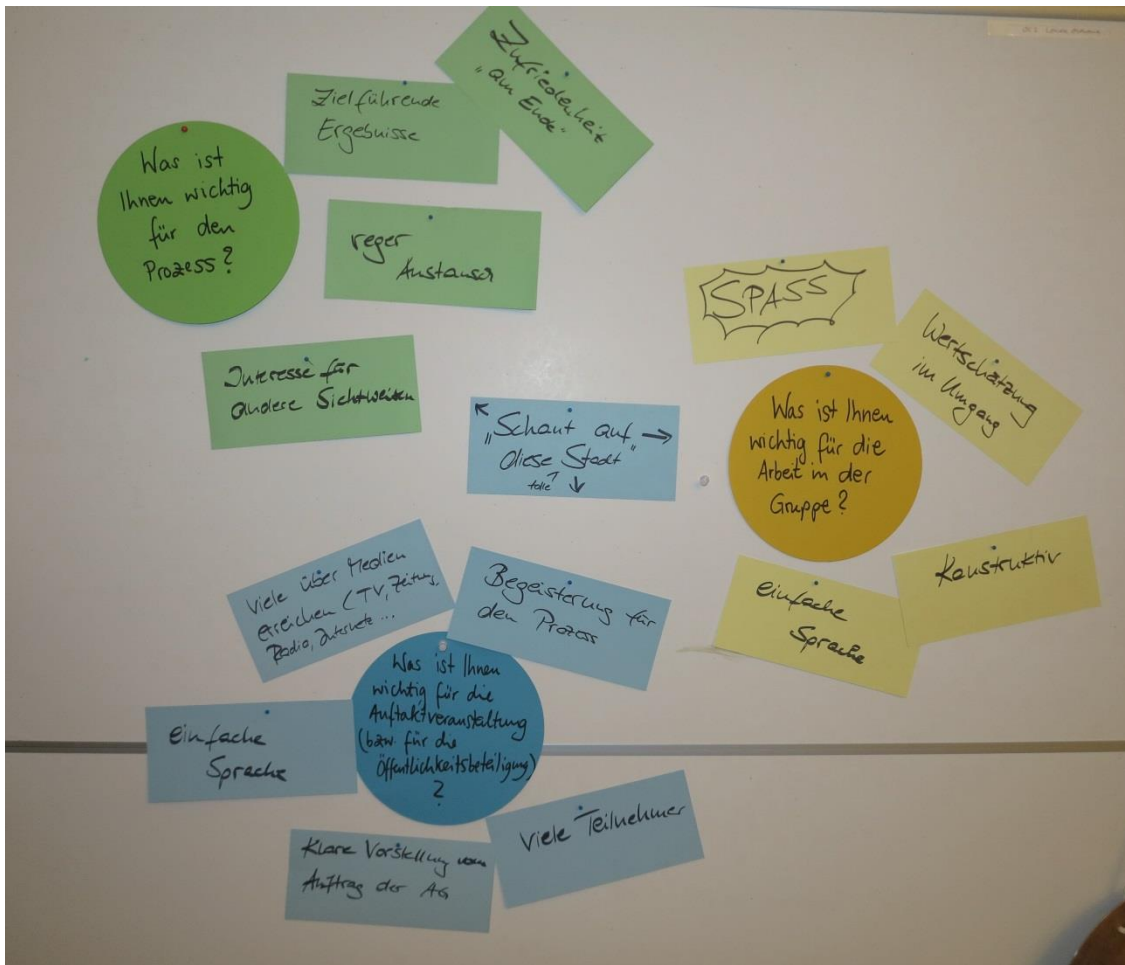 Was ist
Ihnen wichtig
für den
Prozess?
Zielführende
Ergebnisse
Zufriedenheit
"am Ende"
reger
Austausch
Interesse für
andere Sichtweisen
"Schaut auf
diese Stadt"
tolle
SPASS
Wertschätzung
im Umgang
Was ist Ihnen
wichtig für die
Arbeit in der
Gruppe?
einfache
Sprache
Konstruktiv
Viele über Medien
erreichen (TV, Zeitung,
Radio, Internet ...
Begeisterung für
den Prozess
Was ist Ihnen
wichtig für die
Auftaktveranstaltung
(bzw. für die
Öffentlichkeitsbeteiligung)
?
einfache
Sprache
Klare Vorstellung vom
Auftrag der AG
Viele Teilnehmer